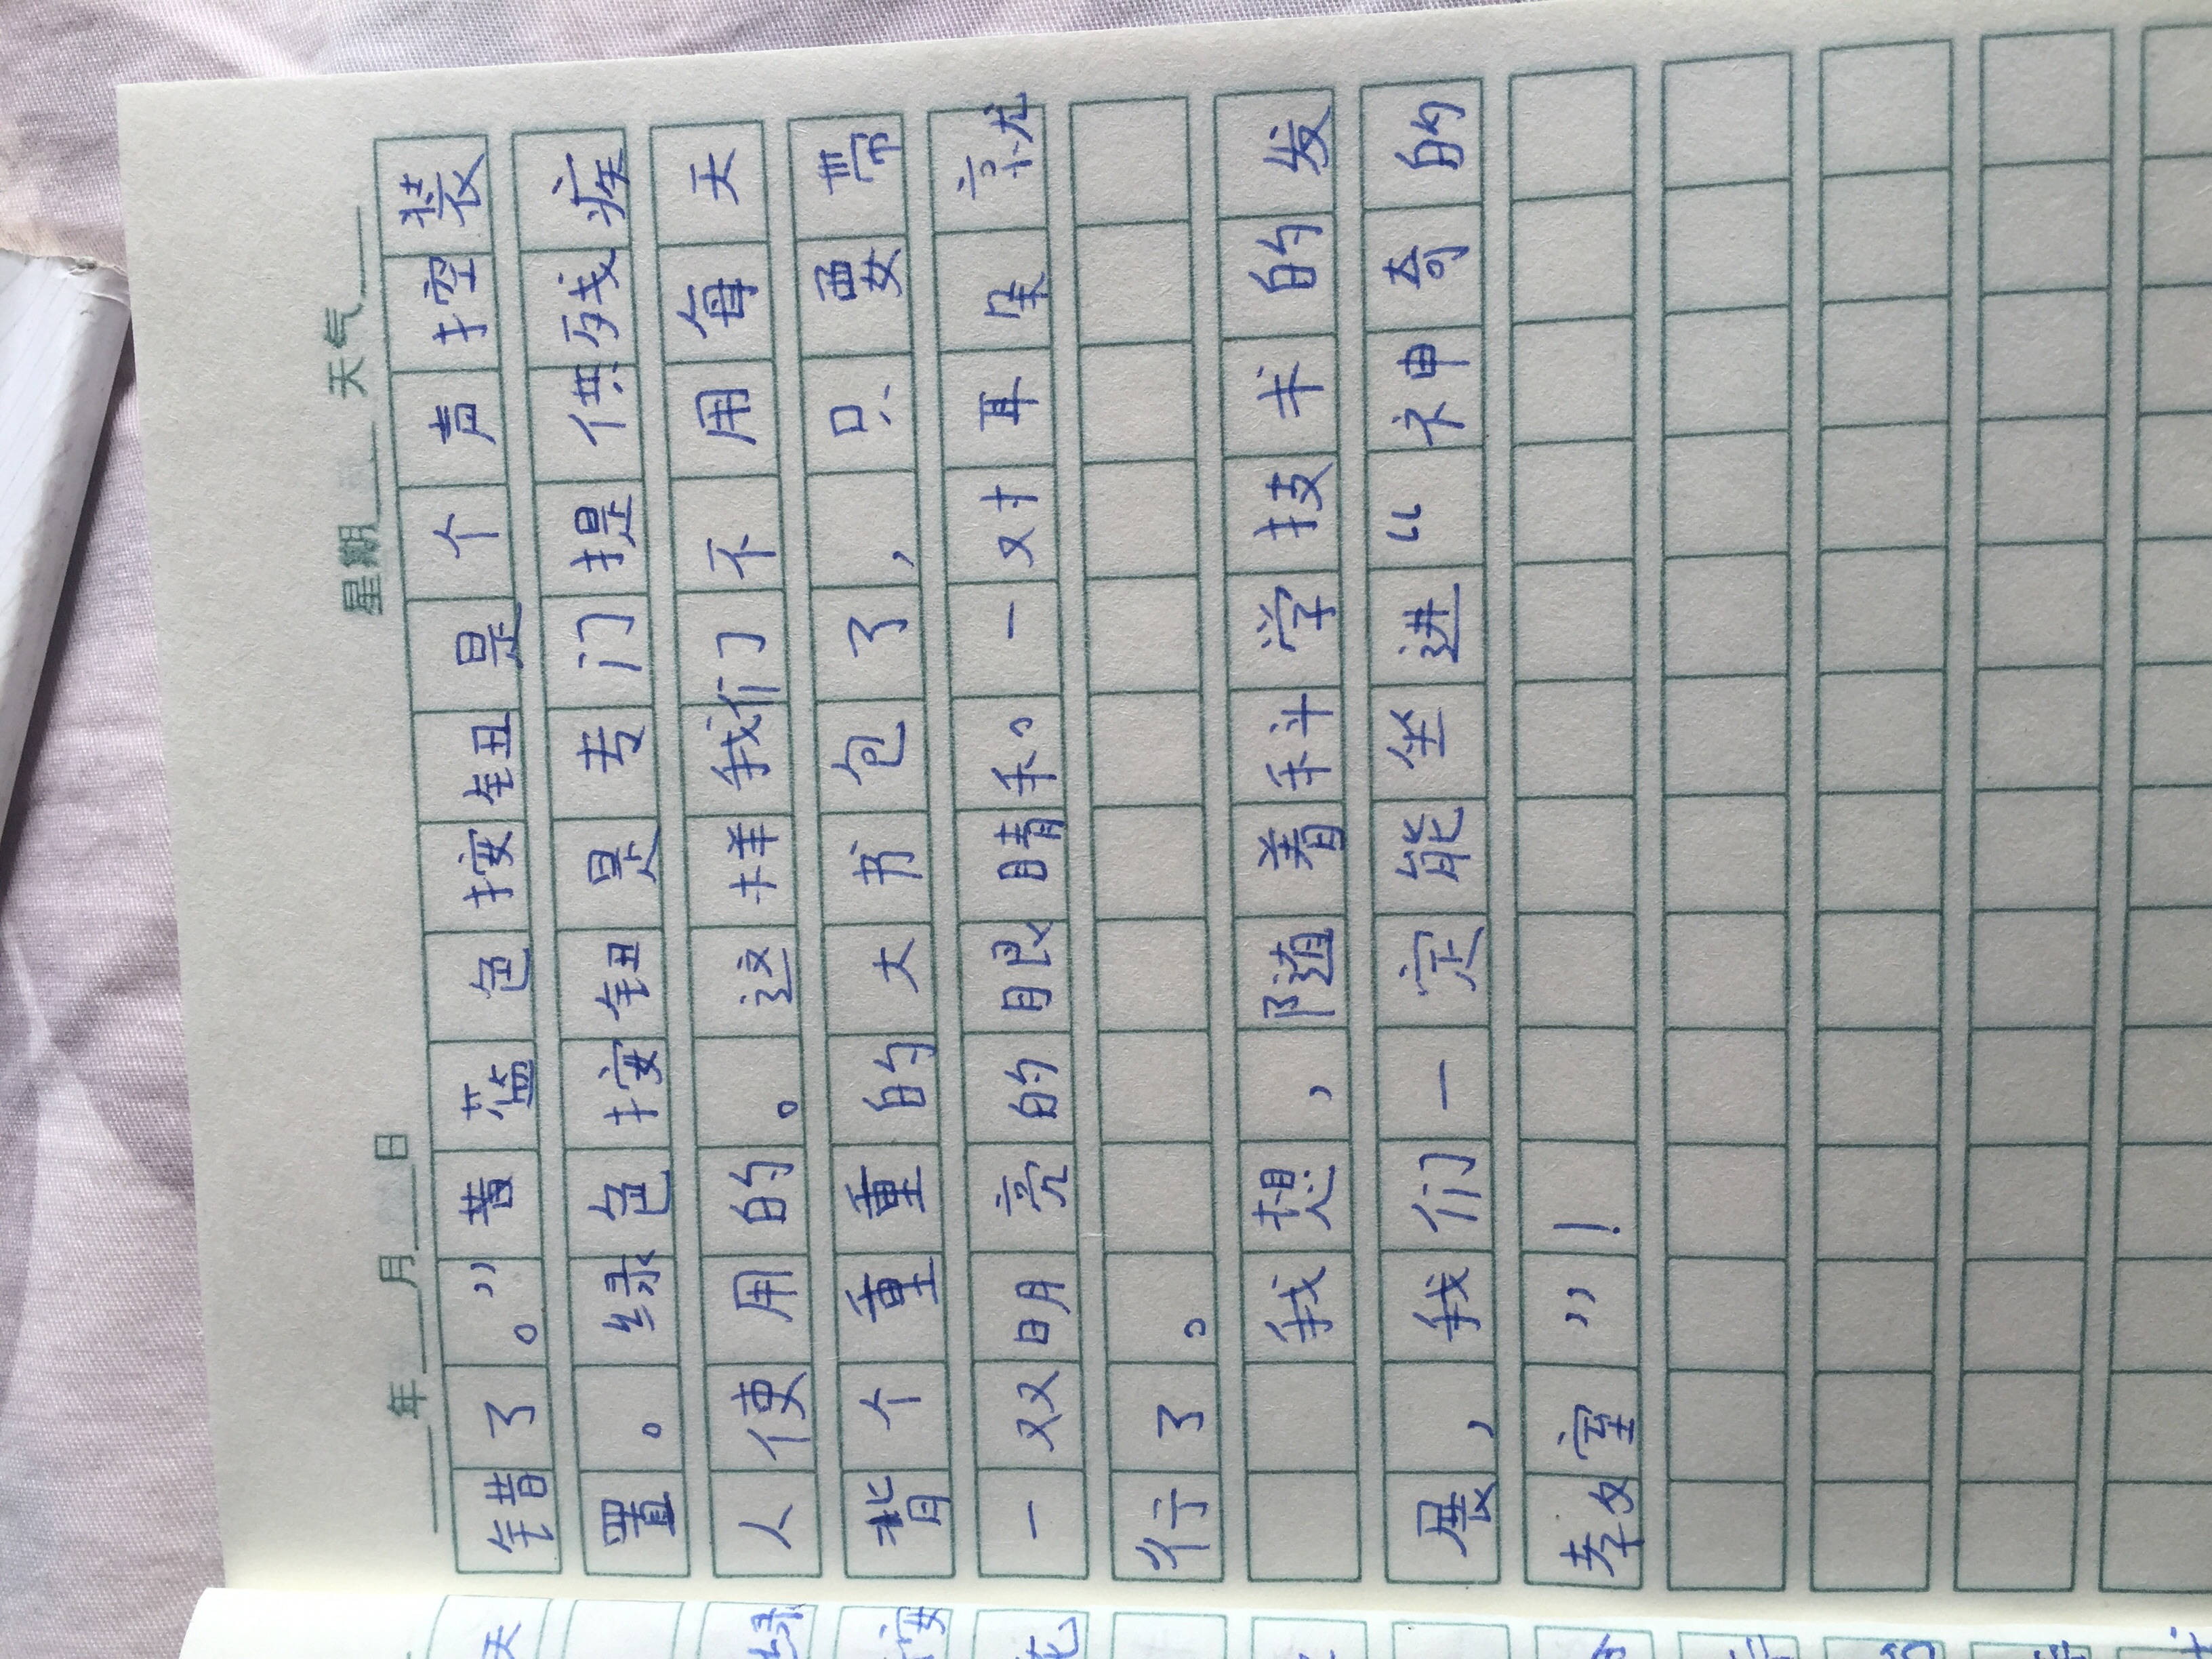 年 月 日 星期 天气
错了。”昔蓝色按钮是个声控装
置。绿色按钮是专门提供残疾
人使用的。这样我们不用每天
背个重重的大书包了,只要带
一双明亮的眼睛和一对耳朵就
行了。
我想,随着科学技术的发
展,我们一定能坐进“神奇的
教室”!